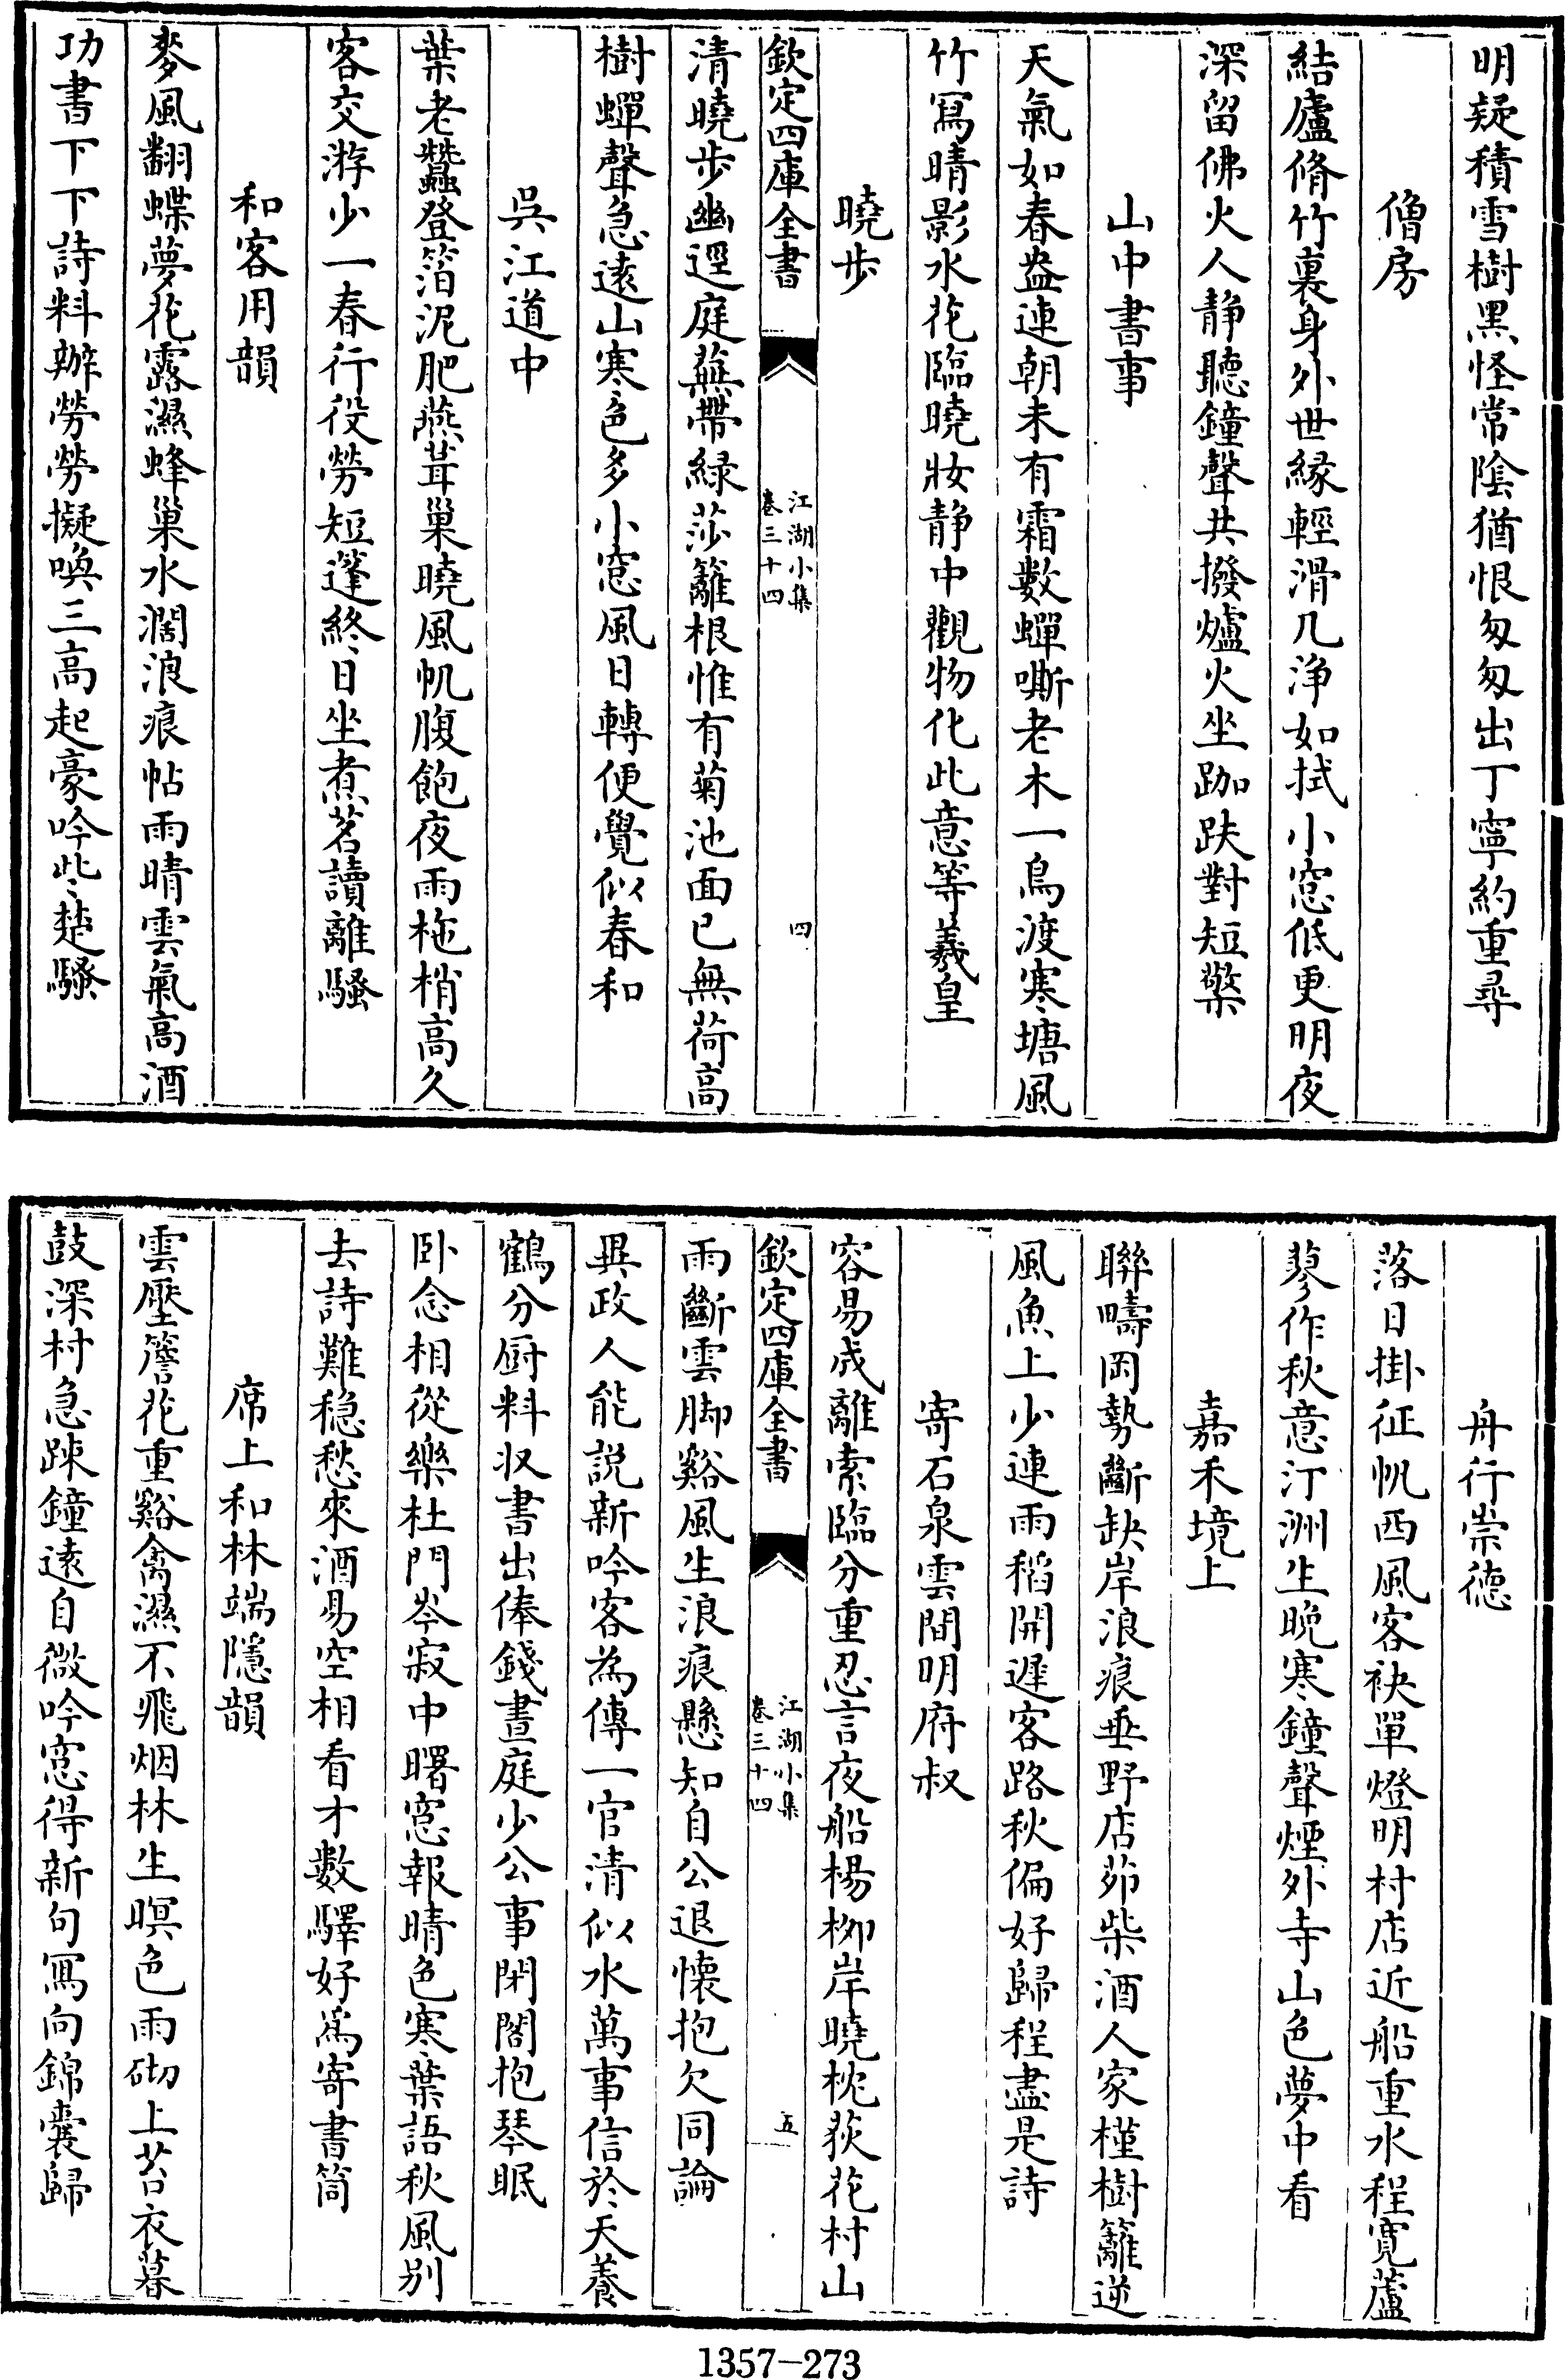 明疑積雪樹黑怪常陰猶恨匆匆出丁寧約重尋
僧房
結廬脩竹裏身外世緣輕滑几浄如拭小窓低更明夜
深留佛火人静聽鐘聲共撥爐火坐跏趺對短檠
山中書事
天氣如春盎連朝未有霜數蟬嘶老木一鳥渡寒塘風
竹冩晴影水花臨曉妝静中觀物化此意等羲皇
曉步
欽定四庫全書
江湖小集
卷三十四
四
清曉步幽逕庭蕪帶緑莎籬根惟有菊池面已無荷高
樹蟬聲急遠山寒色多小窓風日轉便覺似春和
吳江道中
葉老蠶登箔泥肥燕葺巢曉風帆腹飽夜雨柂梢高久
客交游少一春行役勞短蓬終日坐煮茗讀離騷
和客用韻
麥風翻蝶夢花露濕蜂巢水濶浪痕帖雨晴雲氣高酒
功書下下詩料辦勞勞擬喚三高起豪吟些楚騷
舟行崇德
落日掛征帆西風客袂單燈明村店近船重水程寛蘆
蓼作秋意汀洲生晚寒鐘聲煙外寺山色夢中看
嘉禾境上
聯疇岡勢斷缺岸浪痕垂野店茆柴酒人家槿樹籬逆
風魚上少連雨稻開遲客路秋偏好歸程盡是詩
寄石泉雲間明府叔
容易成離索臨分重忍言夜船楊栁岸曉枕荻花村山
欽定四庫全書
江湖小集
卷三十四
五
雨斷雲脚谿風生浪痕懸知自公退懐抱欠同論
異政人能説新吟客為傳一官清似水萬事信於天養
鶴分厨料収書出俸錢晝庭少公事閉閤抱琴眠
卧念相從樂杜門岑寂中曙窓報晴色寒葉語秋風别
去詩難穏愁來酒易空相看才數驛好為寄書筒
席上和林端隱韻
雲壓簷花重谿禽濕不飛烟林生暝色雨砌上苔衣暮
鼓深村急踈鐘遠自微吟窓得新句冩向錦囊歸
1357-273